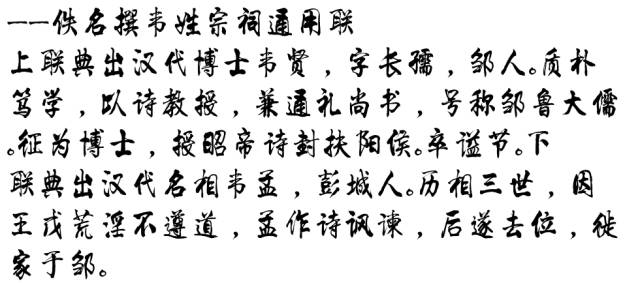 ——佚名撰韦姓宗祠通用联
上联典出汉代博士韦贤，字长孺，邹人。质朴
笃学，以诗教授，兼通礼尚书，号称邹鲁大儒
。征为博士，授昭帝诗封扶阳侯。卒谥节。下
联典出汉代名相韦孟，彭城人。历相三世，因
王戊荒淫不遵道，孟作诗讽谏，后遂去位，徙
家于邹。